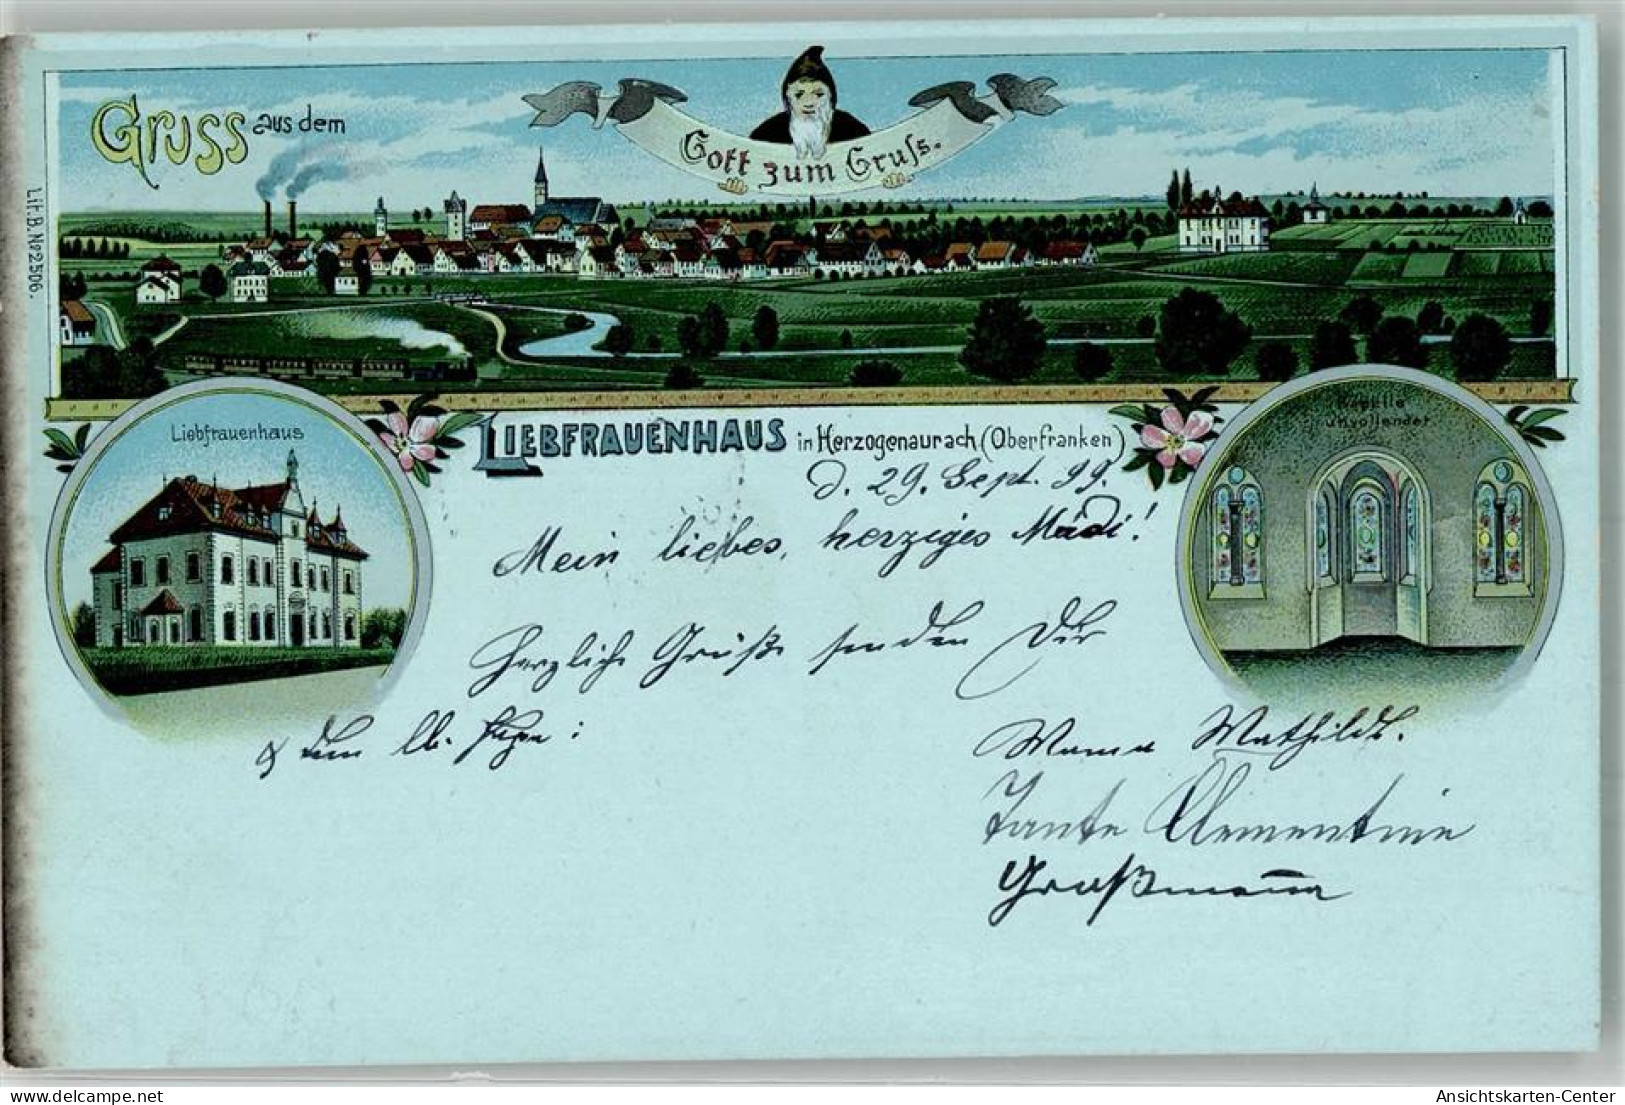 Gruss aus dem
Gott zum Gruß.
Lit. B. No 2506.
Liebfrauenhaus
Kapelle
unvollendet
LIEBFRAUENHAUS in Herzogenaurach (Oberfranken)
d. 29. Sept. 99.
Mein liebes, herziges Mädi!
Herzliche Grüße senden Dir
Mama Mathilde.
Tante Clementine
Großmama
Ansichtskarten-Center